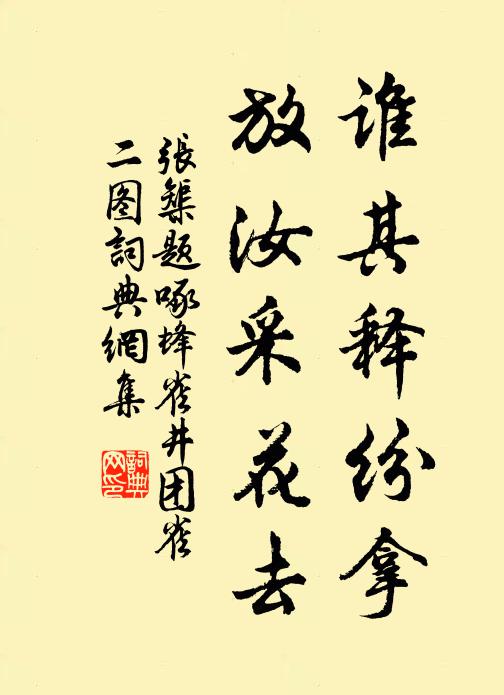 谁其释纷拿
放汝采花去
張榘题啄蜂雀井团雀
二图詞典網集
詞典网印